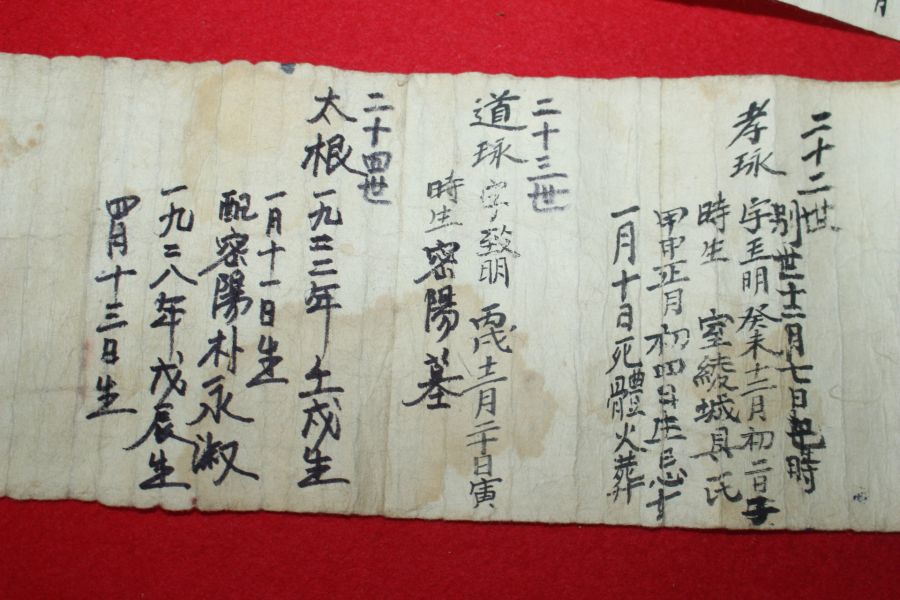 二十二世
別世十二月七日 時
孝琢 字玉明 癸未十二月初二日子
時生 室綾城具氏
甲申正月初四日生忌十
一月十日死體火葬
二十三世
道琢 字致明 丙戌十二月二十日寅
時生 密陽墓
二十四世
太根 一九二二年 壬戌生
一月十一日生
配密陽朴永淑
一九二八年 戊辰生
四月十三日生